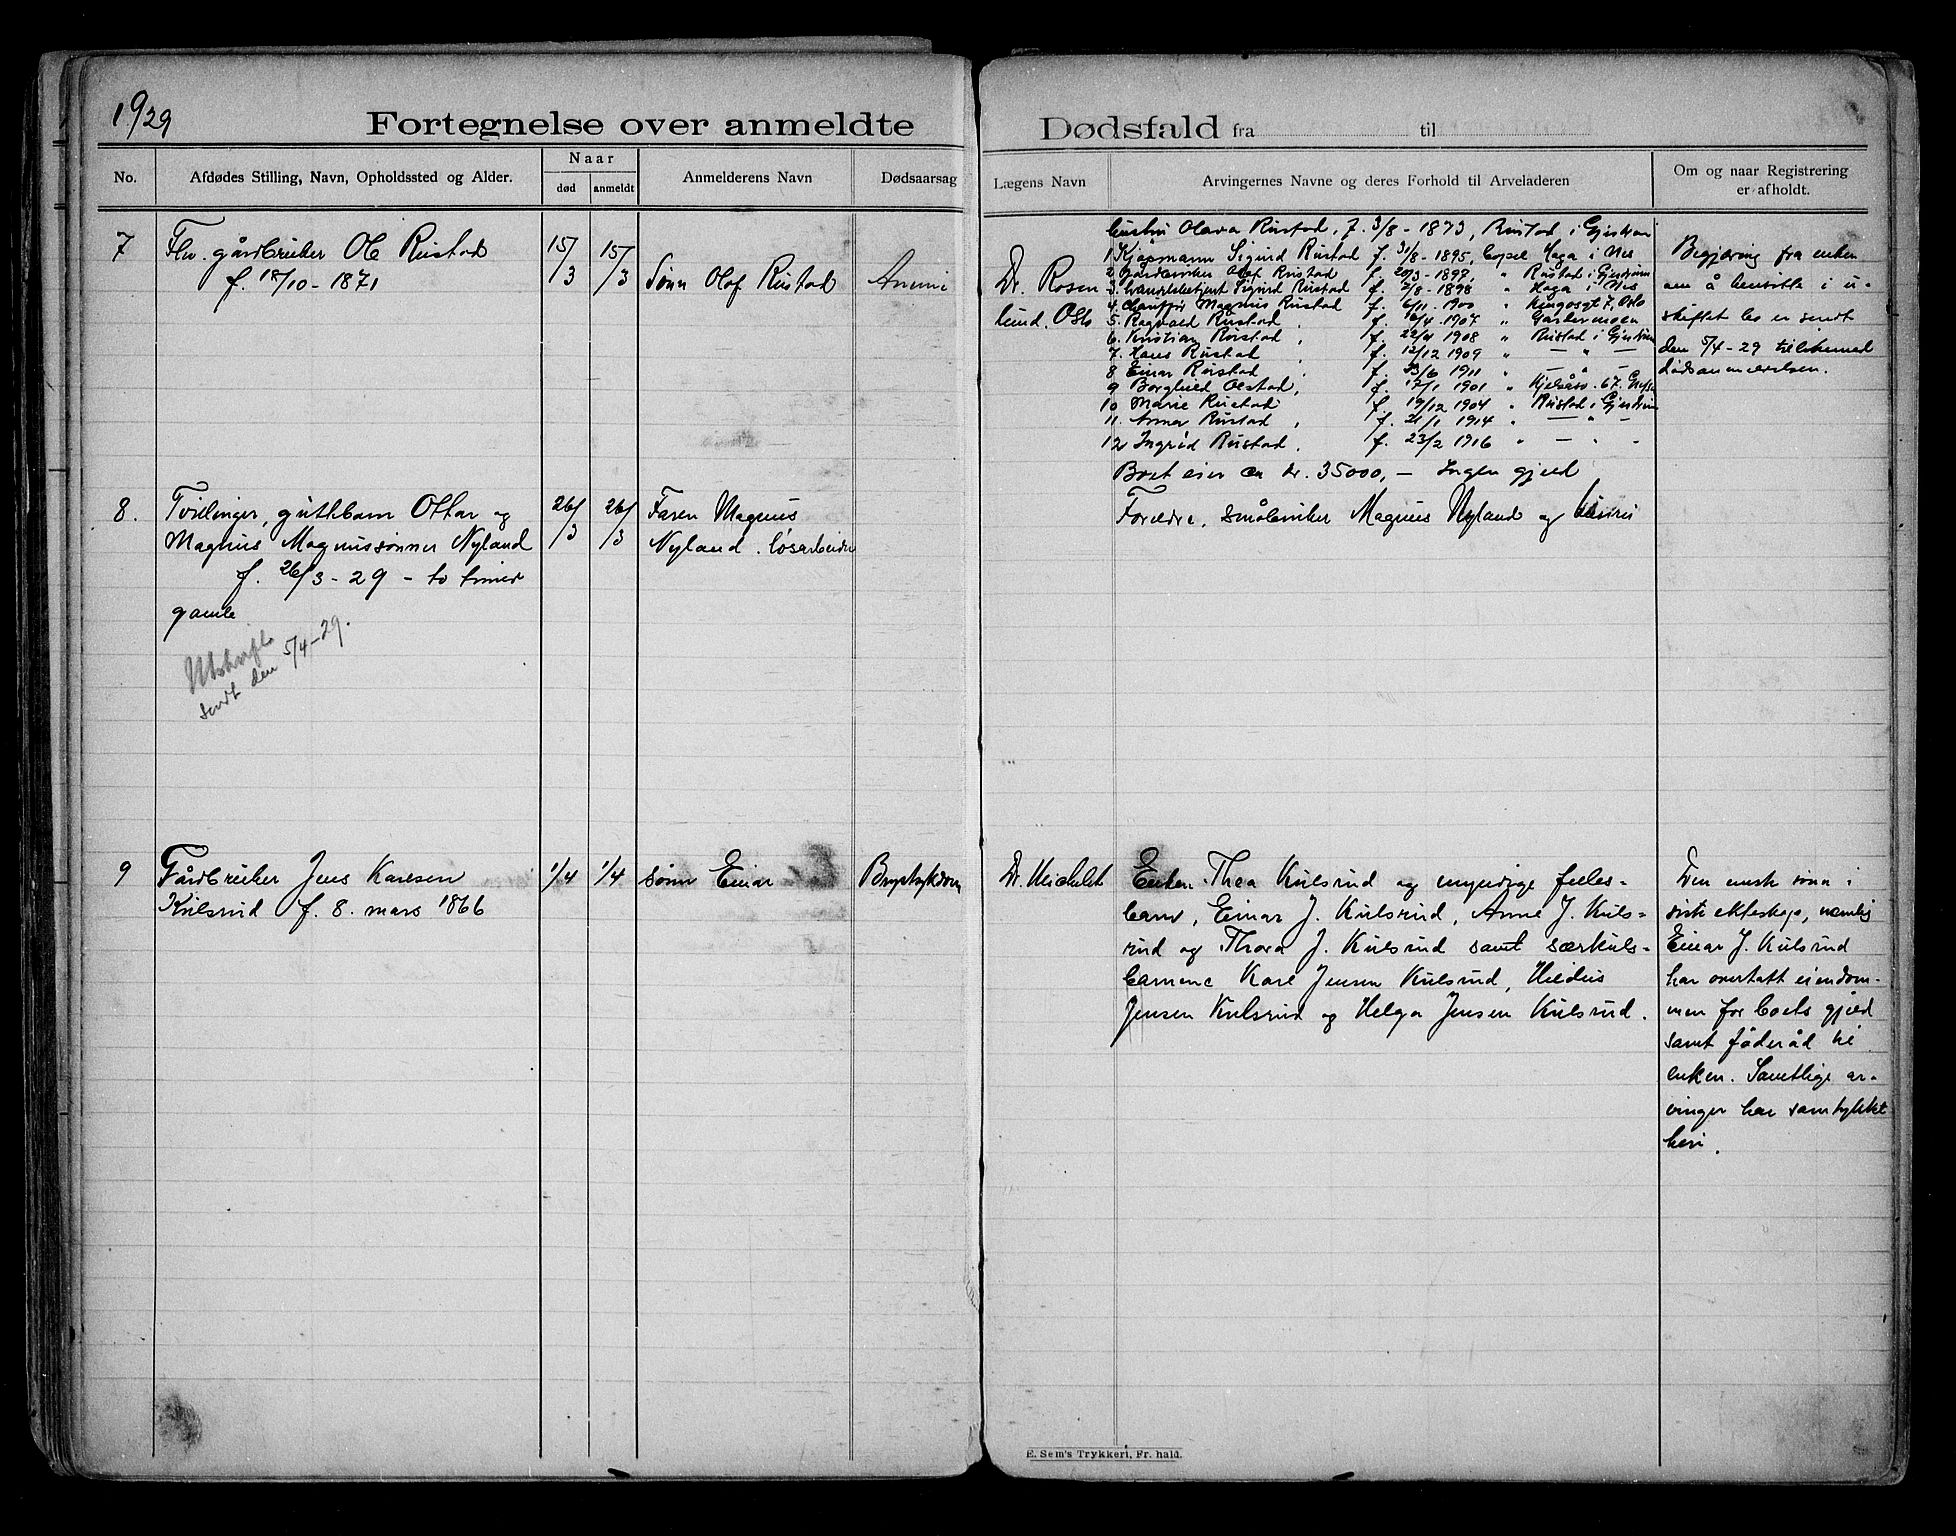 1929
Fortegnelse over anmeldte
Dødsfald fra til
No.
Afdødes Stilling, Navn, Opholdssted og Alder.
Naar
død
anmeldt
Anmelderens Navn
Dødsaarsag
Lægens Navn
Arvingernes Navne og deres Forhold til Arveladeren
Om og naar Registrering
er afholdt.
7
Fhv. gårdbruker Ole Rustad
f. 18/10 - 1871
15/3
15/3
Sønn Olaf Rustad
Anemi
Dr. Rosen
lund. Oslo
Hustru Olava Rustad, f. 3/8 - 1873, Rustad i Gjerdrum
1 Kjøpmann Sigurd Rustad f. 31/8 - 1895, bopel Haga i Nes
2. Gårdbruker Olaf Rustad f. 20/3 - 1897, " Rustad i Gjerdrum
3. Handelsbetjent Sigurd Rustad f. 7/8 - 1898 " Haga i Nes
4. Chauffør Magnus Rustad f. 6/11 . 1900 " Kingosgt 7. Oslo
5. Ragvald Rustad , f. /4 . 1907 " Gardermoen
6. Kristian Rustad , f. 22/4 1908 " Rustad i Gjerdrum
7. Hans Rustad , f. 12/12 1909 " — " —
8. Einar Rustad , f. 23/6 1911 " — " —
9 Borghild Olstad, f. 17/1 1901 " Kjelsåsv. 67.
10 Marie Rustad f. 19/12 1904 " Rustad i Gjerdrum
11. Anna Rustad , f. 21/1 1914 " — " —
12 Ingrid Rustad , f. 23/2 1916 " — " -
Boet eier ca kr. 35000,- Ingen gjeld
Begjæring fra enken
om å hensitte i u-
skiftet bo er sendt
den 5/4 - 29 tillikemed
dødsanmeldelsen.
8.
Tvillinger, guttebarn Ottar og
Magnus Magnussønner Nyland
f. 26/3 - 29 - to timer
gamle
Utskrift
sendt den 5/4 - 29.
26/3
26/3
Faren Magnus
Nyland. løsarbeider
Foreldre, småbruker Magnus Nyland og hustru
9
Gårdbruker Jens Karlsen
Kulsrud f. 8. mars 1866
1/4
1/4
sønn Einar
Brystsykdom
Dr. Michelet
Enken Thea Kulsrud og myndige felles=
barn, Einar J. Kulsrud, Anne J. Kuls=
rud og Thora J. Kulsrud samt særkuls=
barnene Karl Jensen Kulsrud, Hildus
Jensen Kulsrud og Helga Jensen Kulsrud.
Den eneste sønn i
siste ekteskap, nemlig
Einar J. Kulsrud
har overtatt eiendom-
men for boets gjeld
samt føderåd til
enken. Samtlige ar-
vinger har samtykket
heri.
E. Sem's Trykkeri, Fr. hald.